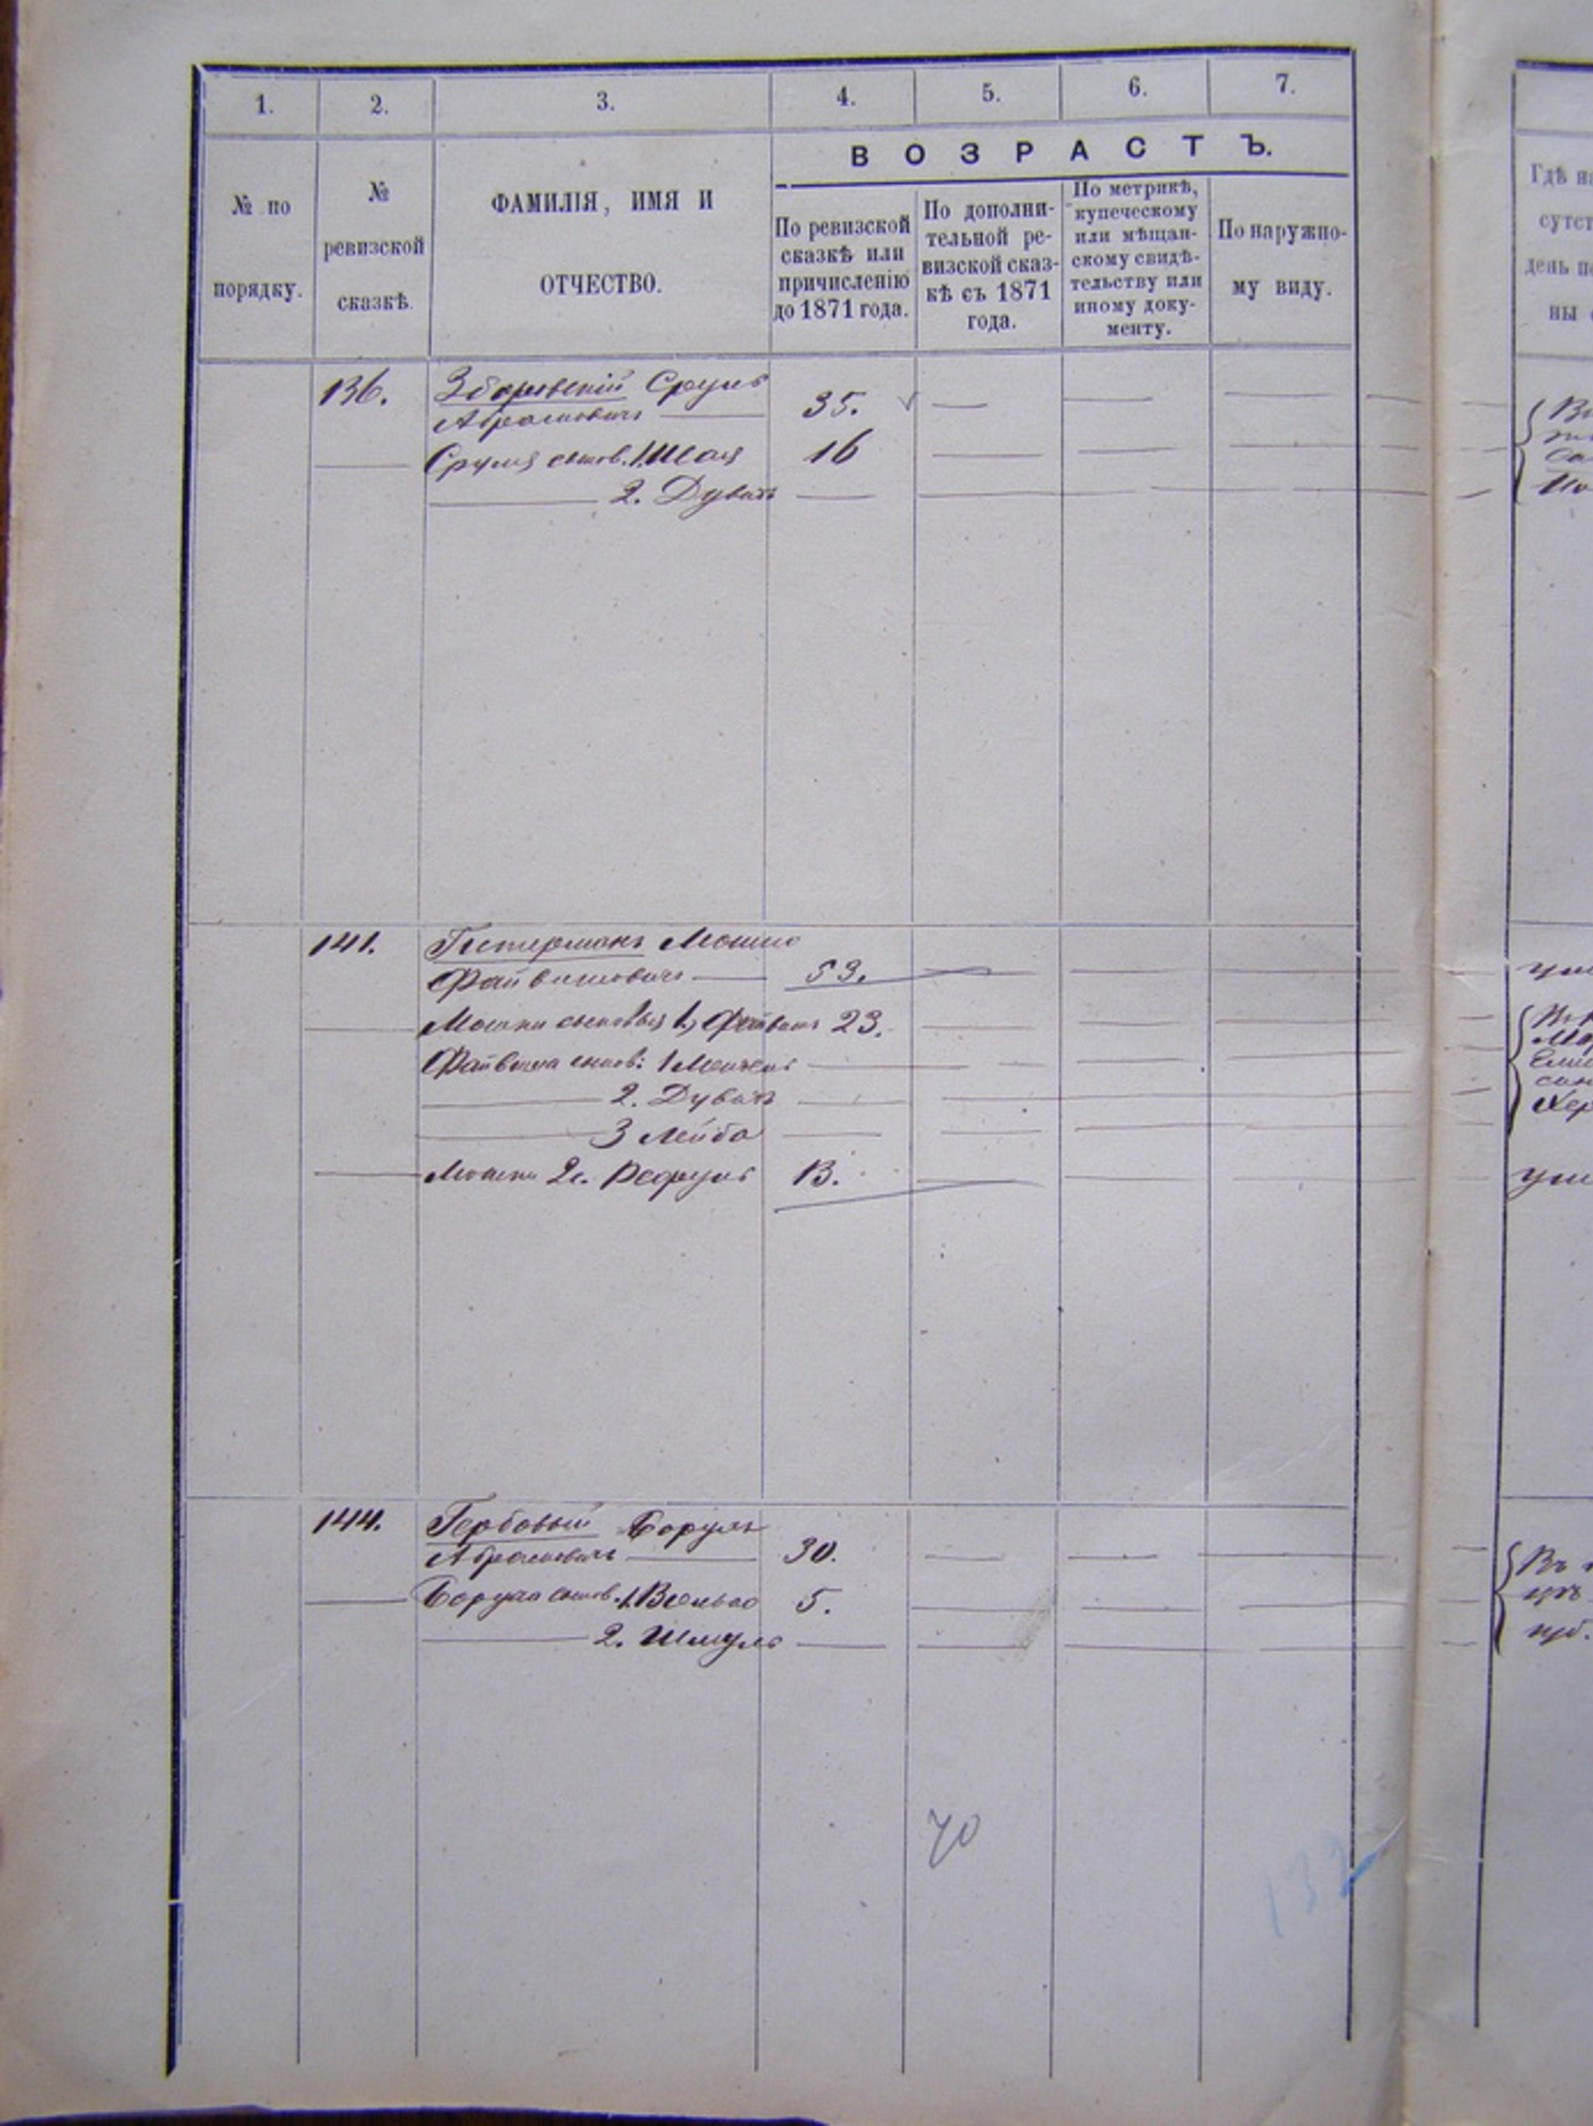 1. 2. 3. 4. 5. 6. 7.
№ по порядку.
№ ревизской сказкѣ.
ФАМИЛІЯ, ИМЯ И
ОТЧЕСТВО.
ВОЗРАСТЪ.
По ревизской
сказкѣ или
причисленію
до 1871 года.
По дополни-
тельной ре-
визской сказ-
кѣ съ 1871
года.
По метрикѣ,
купеческому
или мѣщан-
скому свидѣ-
тельству или
иному доку-
менту.
По наружно-
му виду.
Гдѣ на
сутст
день п
ны
136. Зборовскій Сруль
Абрамовичъ 35.
Сруля сынов. 1. Шая 16
2. Дувидъ
141. Гитерманъ Мошко
Файвишовичъ 53.
Мошки сыновья 1, Файвишъ 23.
Файвиша сынов: 1 Мошко
2. Дувидъ
3 Лейба
Мошки 2 с. Рефуль 13.
144. Гербовый Борухъ
Абрамовичъ 30.
Боруха сынов. 1. Волько 5.
2. Шмуль
70
132